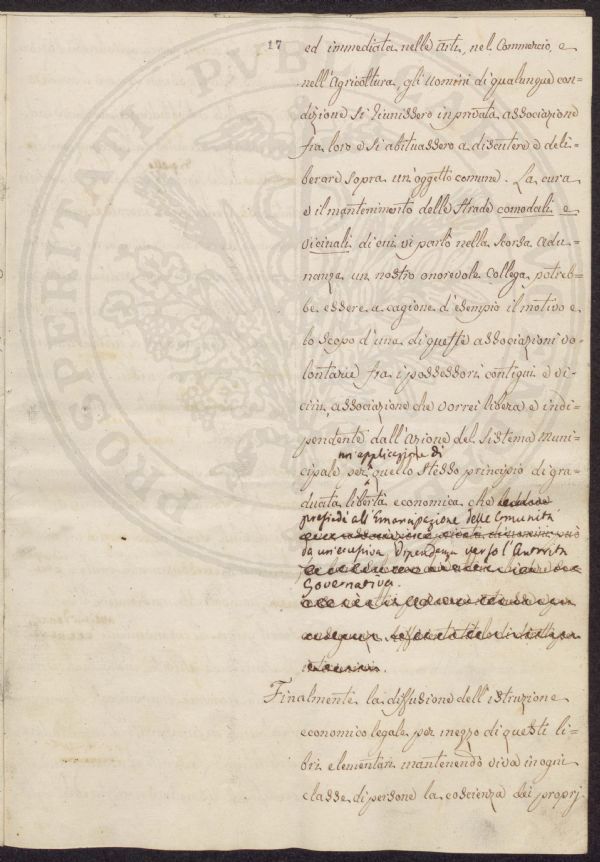 17
ed immediata nelle arti, nel Commercio, e
nell'Agricoltura, gli uomini di qualunque con=
dizione si riunissero in privata associazione
fra loro e si abituassero a discutere e deli=
berare sopra un'oggetto comune. La cura
e il mantenimento delle Strade comodali e
vicinali di cui vi parlò nella scorsa adu=
nanza un nostro onorevole Collega, potreb=
be essere a cagione d'esempio il motivo e
lo scopo d'una di queste associazioni vo=
lontarie fra i possessori contigui e vi=
cini, associazione che vorrei libera e indi=
pendente dall'azione del sistema muni=
un'applicazione di
cipale per quello stesso principio di gra=
duata libertà economica che
presiedè all'Emancipazione delle Comunità
da un'eccessiva dipendenza verso l'Autorità
Governativa.
Finalmente la diffusione dell'istruzione
economico legale per mezzo di questi li=
bri elementari mantenendo viva in ogni
classe di persone la coscienza dei proprj
PROSPERITATI PUBLICAE